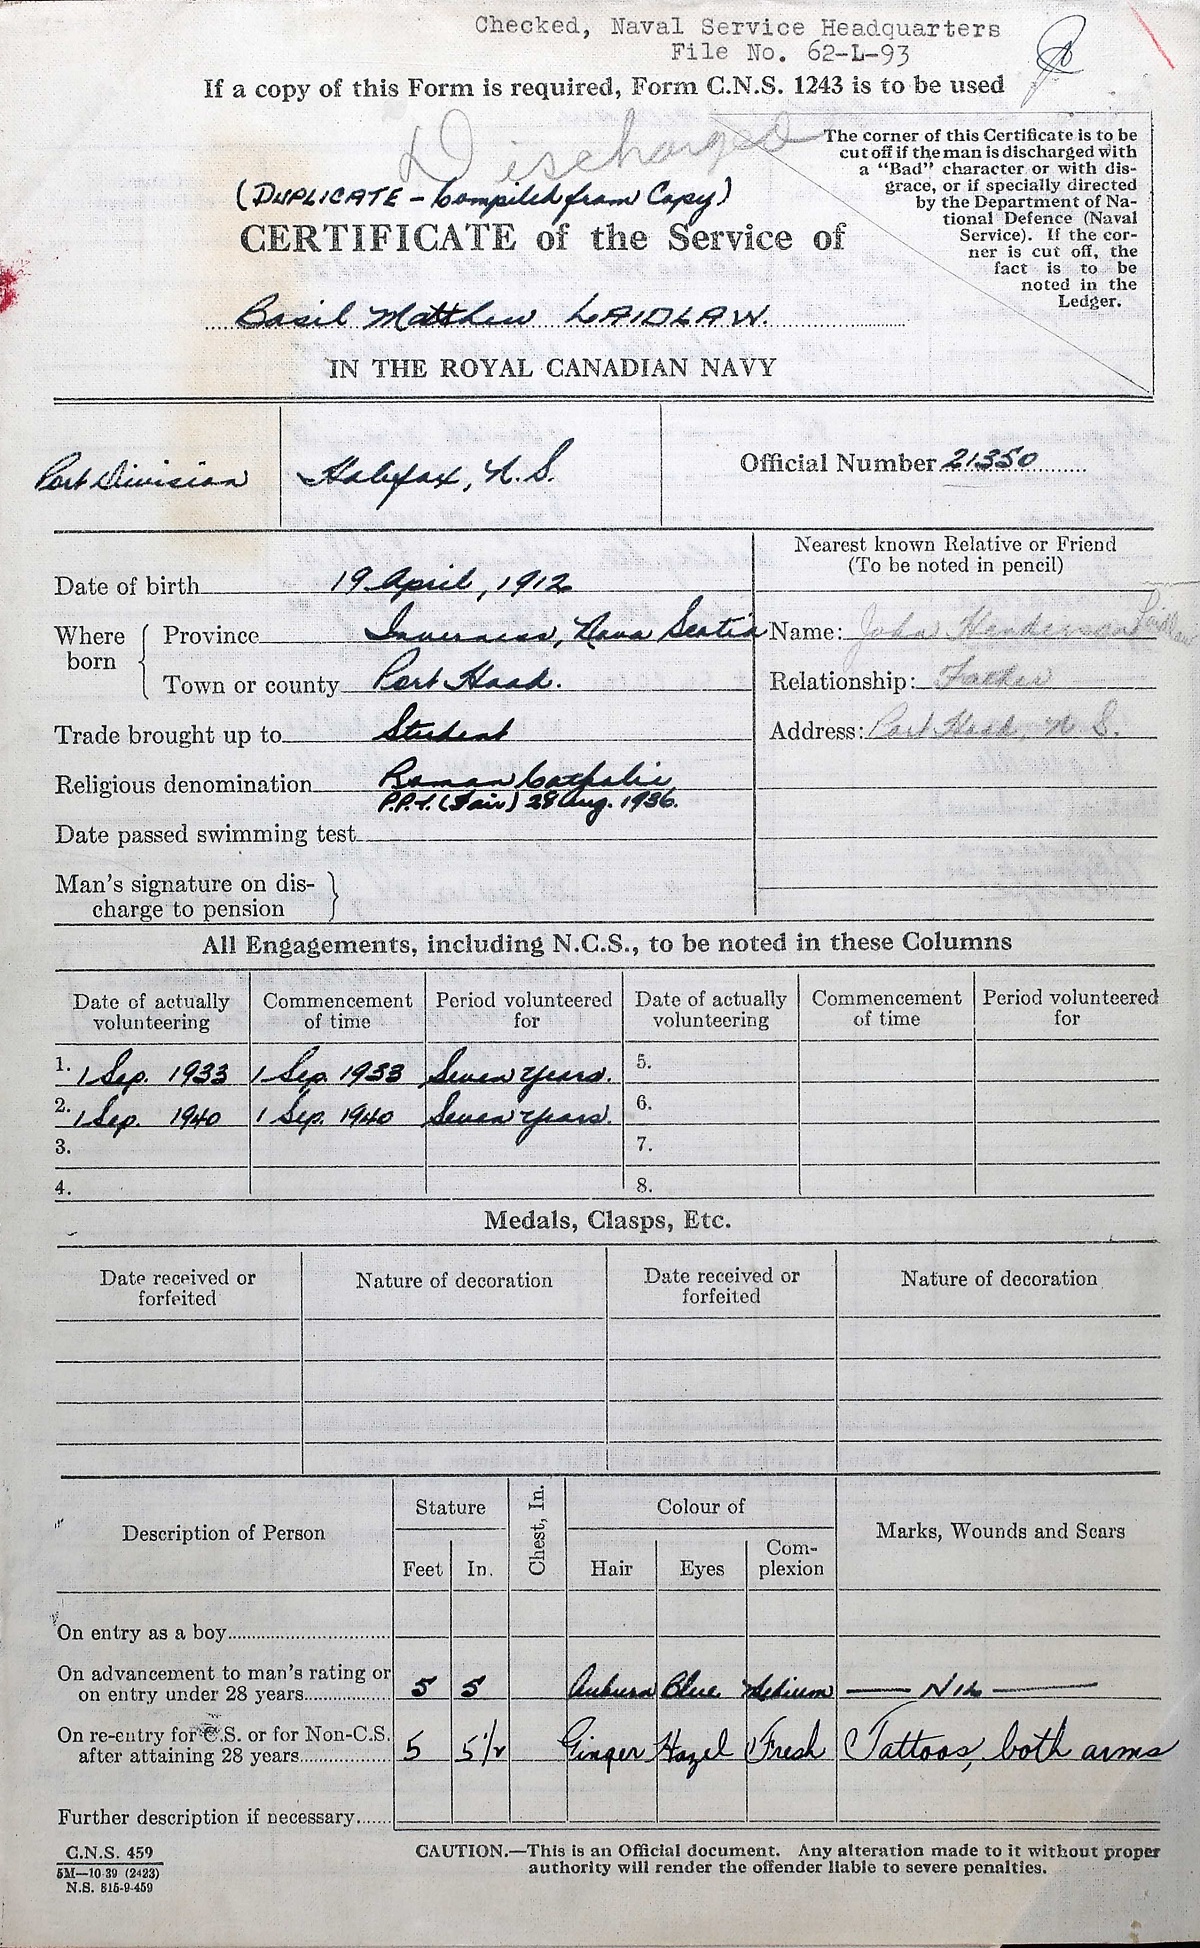 Checked, Naval Service Headquarters
File No. 62-L-93
If a copy of this Form is required, Form C.N.S. 1243 is to be used
Discharged
The corner of this Certificate is to be
cut off if the man is discharged with
a "Bad" character or with dis-
grace, or if specially directed
by the Department of Na-
tional Defence (Naval
Service). If the cor-
ner is cut off, the
fact is to be
noted in the
Ledger.
(DUPLICATE - Compiled from Copy)
CERTIFICATE of the Service of
Basil Matthew LAIDLAW.
IN THE ROYAL CANADIAN NAVY
Port Division Halifax, N.S. Official Number 21350
Nearest known Relative or Friend
(To be noted in pencil)
Date of birth 19 April, 1912
Where born
Province Inverness, Nova Scotia
Name: John Henderson Laidlaw
Town or county Port Hood.
Relationship: Father
Trade brought up to Student
Address: Port Hood, N.S.
Religious denomination Roman Catholic
P.P.T. (Fair) 28 Aug. 1936.
Date passed swimming test
Man's signature on dis-
charge to pension
All Engagements, including N.C.S., to be noted in these Columns
Date of actually volunteering Commencement of time Period volunteered for Date of actually volunteering Commencement of time Period volunteered for
1. 1 Sep. 1933 1 Sep. 1933 Seven years. 5.
2. 1 Sep. 1940 1 Sep. 1940 Seven years. 6.
3. 7.
4. 8.
Medals, Clasps, Etc.
Date received or forfeited Nature of decoration Date received or forfeited Nature of decoration
Description of Person Stature Chest, In. Colour of Marks, Wounds and Scars
Feet In. Hair Eyes Com-
plexion
On entry as a boy
On advancement to man's rating or
on entry under 28 years 5 5 Auburn Blue Medium — NIL —
On re-entry for C.S. or for Non-C.S.
after attaining 28 years 5 5½ Ginger Hazel Fresh Tattoos, both arms
Further description if necessary
C.N.S. 459
5M—10-39 (2423)
N.S. 815-9-459
CAUTION.—This is an Official document. Any alteration made to it without proper
authority will render the offender liable to severe penalties.